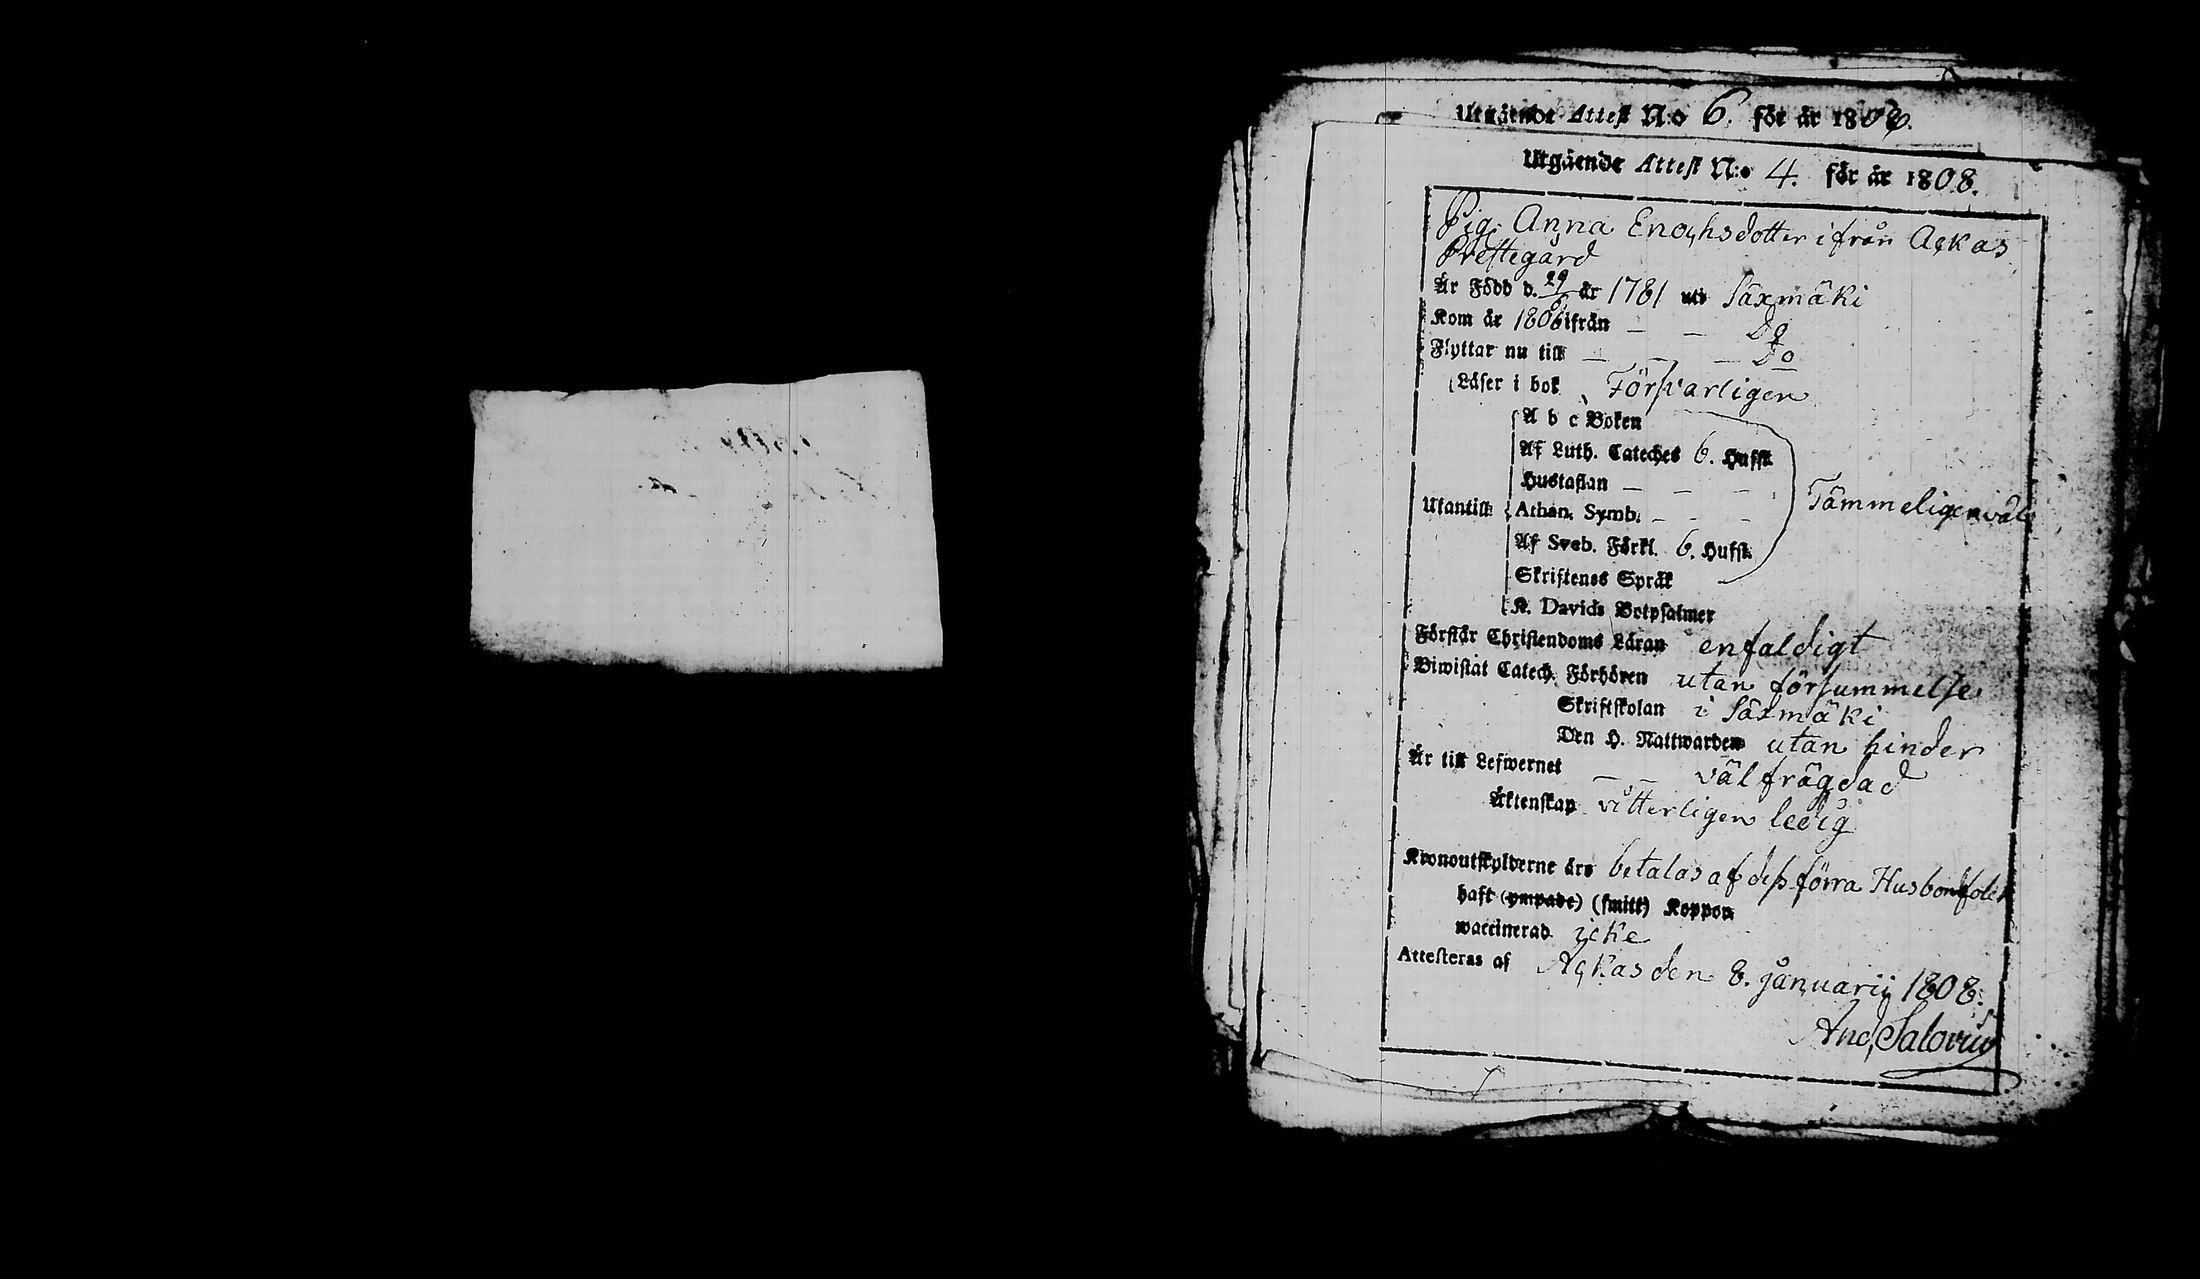 Utgående Attest N:o 6. för år 1808.
Utgående Attest N:o 4. för år 1808.
Pig. Anna Enochsdotter ifrån Ackas
Prestegård
Är Född d. 29/6 år 1781 uti Säxmäki
Kom år 1806 ifrån — — Do
Flyttar nu till — — — Do
Läser i bok Försvarligen
A b c Boken
Af Luth. Cateches 6. Hufst.
Hustaflan — — —
Utantill Athan. Symb. — — — Tämmeligen väl
Af Sveb. Förkl. 6. Hufst.
Skriftenes Språk
K. Davids Botpsalmer
Förstår Christendoms Läran enfaldigt
Biwistat Catech. Förhören utan försummelse
Skriftskolan i Säxmäki
Den H. Nattwarden utan hinder
Är till Lefwernet — — välfrägdad
Äktenskap vitterligen ledig
Kronoutskylderne äro betalas af dess förra Husbondfolk
haft (ympade) (smitt) Koppor
waccinerad icke
Attesteras af Ackas den 8. januarii 1808.
And. Salovius